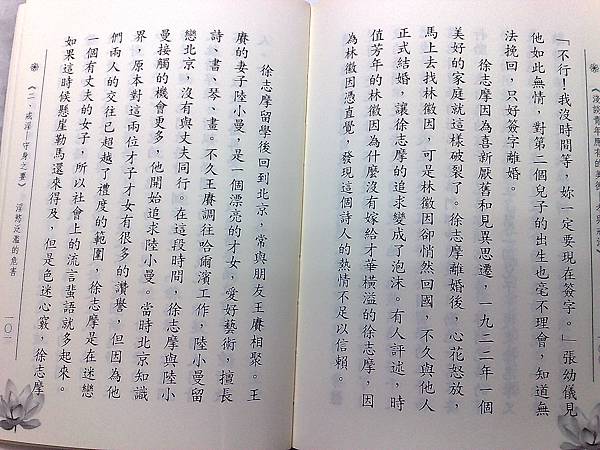 「不行！我沒時間等，妳一定要現在簽字。」張幼儀見
他如此無情，對第二個兒子的出生也毫不理會，知道無
法挽回，只好簽字離婚。
徐志摩因為喜新厭舊和見異思遷，一九二二年一個
美好的家庭就這樣破裂了。徐志摩離婚後，心花怒放，
馬上去找林徽因，可是林徽因卻悄然回國，不久與他人
正式結婚，讓徐志摩的追求變成了泡沫。有人評述，時
值芳年的林徽因為什麼沒有嫁給才華橫溢的徐志摩，因
為林徽因憑直覺，發現這個詩人的熱情不足以信賴。
徐志摩留學後回到北京，常與朋友王賡相聚。王
賡的妻子陸小曼，是一個漂亮的才女，愛好藝術，擅長
詩、書、琴、畫。不久王賡調往哈爾濱工作，陸小曼留
戀北京，沒有與丈夫同行。在這段時間，徐志摩與陸小
曼接觸的機會更多，他開始追求陸小曼。當時北京知識
界，原本對這兩位才子才女有很多的讚譽，但因為他
們兩人的交往已超越了禮度的範圍，徐志摩是在迷戀
一個有丈夫的女子，所以社會上的流言蜚語就多起來。
如果這時候懸崖勒馬還來得及，但是色迷心竅，徐志摩
《二、戒淫—守身之要》 淫慾泛濫的危害
一〇二